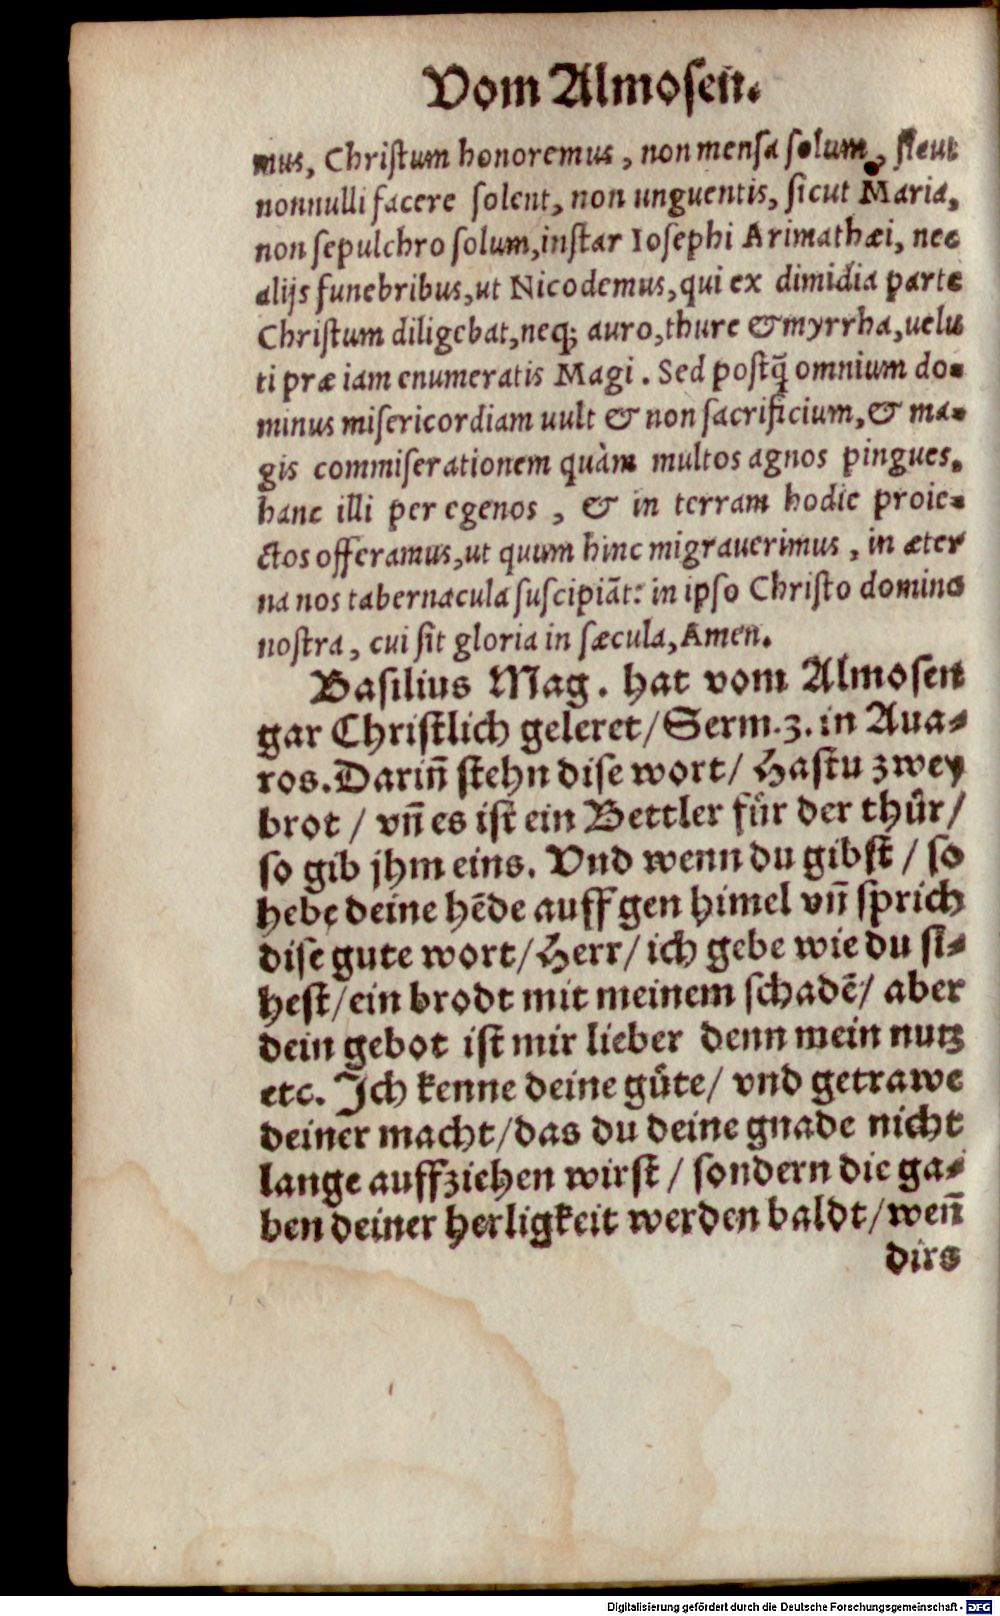 Vom Almosen.
mus, Chriſtum honoremus, non menſa ſolum, ſicut
nonnulli facere ſolent, non unguentis, ſicut Maria,
non ſepulchro ſolum, inſtar Ioſephi Arimathæi, nec
alijs funebribus, ut Nicodemus, qui ex dimidia parte
Chriſtum diligebat, neq; auro, thure & myrrha, uelu
ti præ iam enumeratis Magi. Sed poſtq̃ omnium do⸗
minus miſericordiam uult & non ſacrificium, & ma⸗
gis commiſerationem quàm multos agnos pingues,
hanc illi per egenos, & in terram hodie proie⸗
ctos offeramus, ut quum hinc migrauerimus, in æter
na nos tabernacula ſuſcipiãt: in ipſo Chriſto domino
noſtra, cui ſit gloria in ſæcula, Amen.
Baſilius Mag. hat vom Almoſen
gar Chriſtlich geleret/ Serm. 3. in Aua⸗
ros. Dariñ ſtehn diſe wort/ Haſtu zwey
brot / vñ es iſt ein Bettler fuͤr der thuͤr/
ſo gib jhm eins. Vnd wenn du gibſt / ſo
hebe deine hēde auff gen himel vñ ſprich
diſe gute wort/ Herr/ ich gebe wie du ſi⸗
heſt/ ein brodt mit meinem ſchadē/ aber
dein gebot iſt mir lieber denn mein nutz
etc. Ich kenne deine guͤte/ vnd getrawe
deiner macht/ das du deine gnade nicht
lange auffziehen wirſt / ſondern die ga⸗
ben deiner herligkeit werden baldt/ weñ
dirs
Digitalisierung gefördert durch die Deutsche Forschungsgemeinschaft - DFG